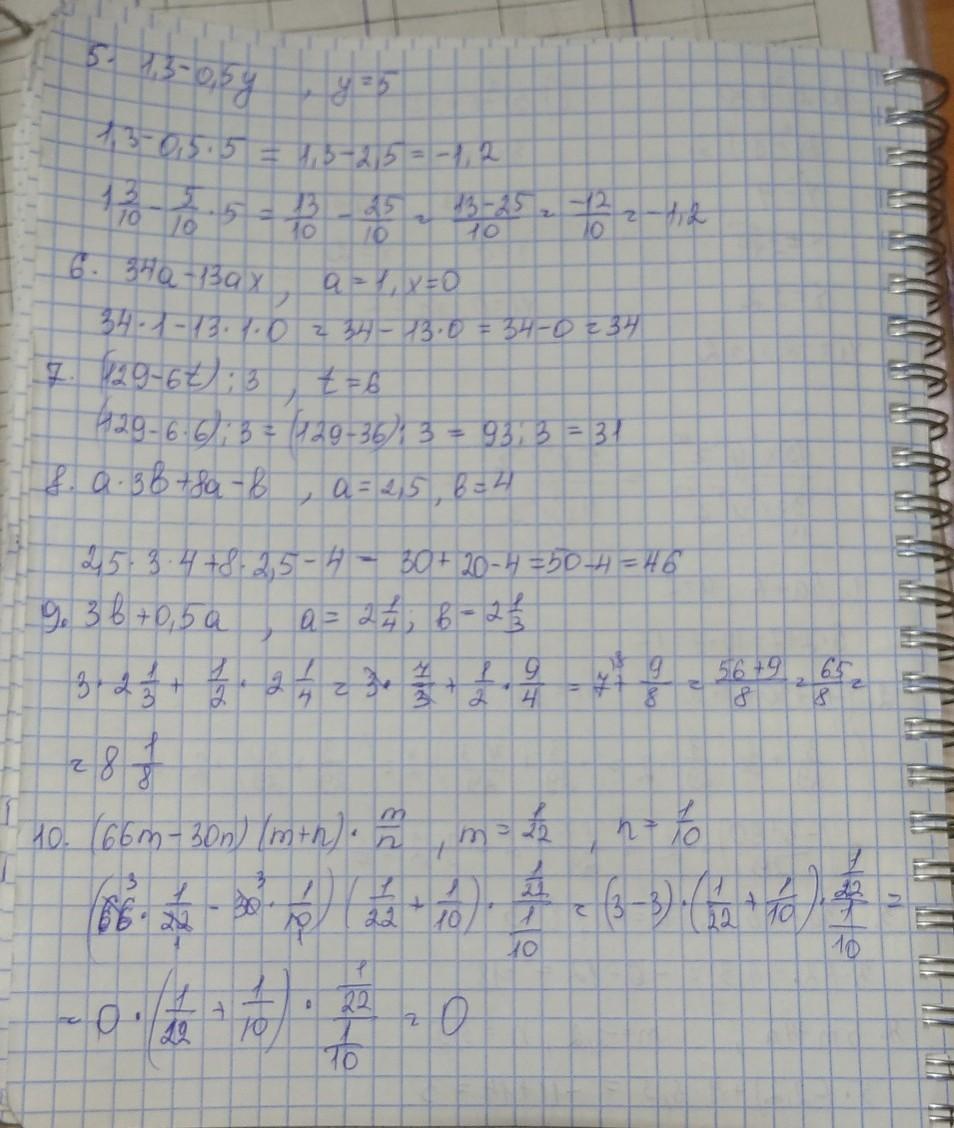 5. 1,3-0,5y , y=5
1,3-0,5·5 = 1,3-2,5=-1,2
1 3/10 - 5/10 ·5 = 13/10 - 25/10 = (13-25)/10 = -12/10 = -1,2
6. 34a-13ax, a=1, x=0
34·1-13·1·0 = 34-13·0=34-0=34
7. (129-6t):3 , t=6
(129-6·6):3=(129-36):3 = 93:3=31
8. a·3b+8a-b , a=2,5, b=4
2,5·3·4+8·2,5-4 = 30+20-4=50-4=46
9. 3b+0,5a , a= 2 1/4; b=2 1/3
3·2 1/3 + 1/2 · 2 1/4 = 3· 7/3 + 1/2 · 9/4 = 7 + 9/8 = (56+9)/8 = 65/8 =
= 8 1/8
10. (66m-30n)(m+n)· m/n , m= 1/22 , n= 1/10
(66· 1/22 - 30· 1/10)(1/22 + 1/10)· (1/22)/(1/10) = (3-3)·(1/22 + 1/10)· (1/22)/(1/10) =
= 0·(1/22 + 1/10)· (1/22)/(1/10) = 0